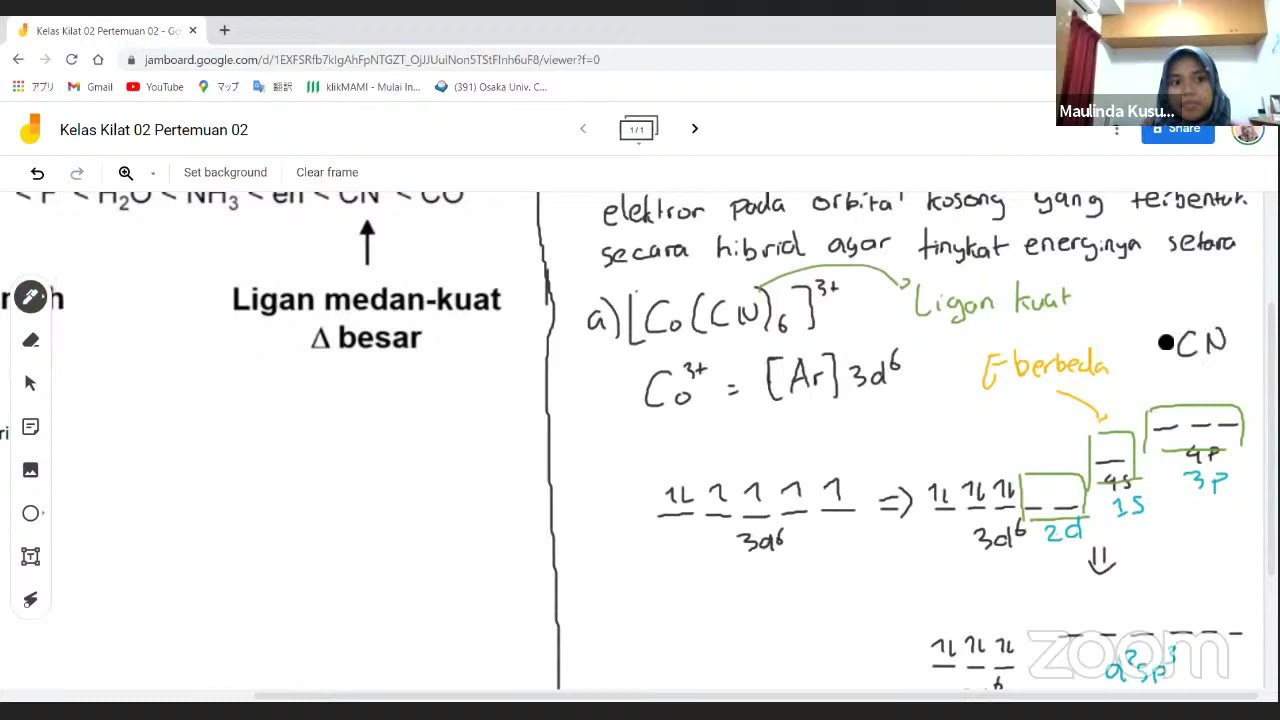 Kelas Kilat 02 Pertemuan 02 - Go
jamboard.google.com/d/1EXFSRfb7kIgAhFpNTGZT_OjJJUuiNon5TStFlnh6uF8/viewer?f=0
アプリ Gmail YouTube マップ 翻訳 klikMAMI - Mulai In... (391) Osaka Univ. C...
Maulinda Kusu...
Kelas Kilat 02 Pertemuan 02
1/1
Share
Set background Clear frame
< F < H₂O < NH₃ < en < CN < CO
Ligan medan-kuat
Δ besar
elektron pada orbital kosong yang terbentuk
secara hibrid agar tingkat energinya setara
a) [Co(CN)₆]³⁺ Ligan kuat
CN
Co³⁺ = [Ar] 3d⁶
E berbeda
4p
3p
4s
1s
=>
3d⁶
3d⁶ 2d
d²sp³
zoom